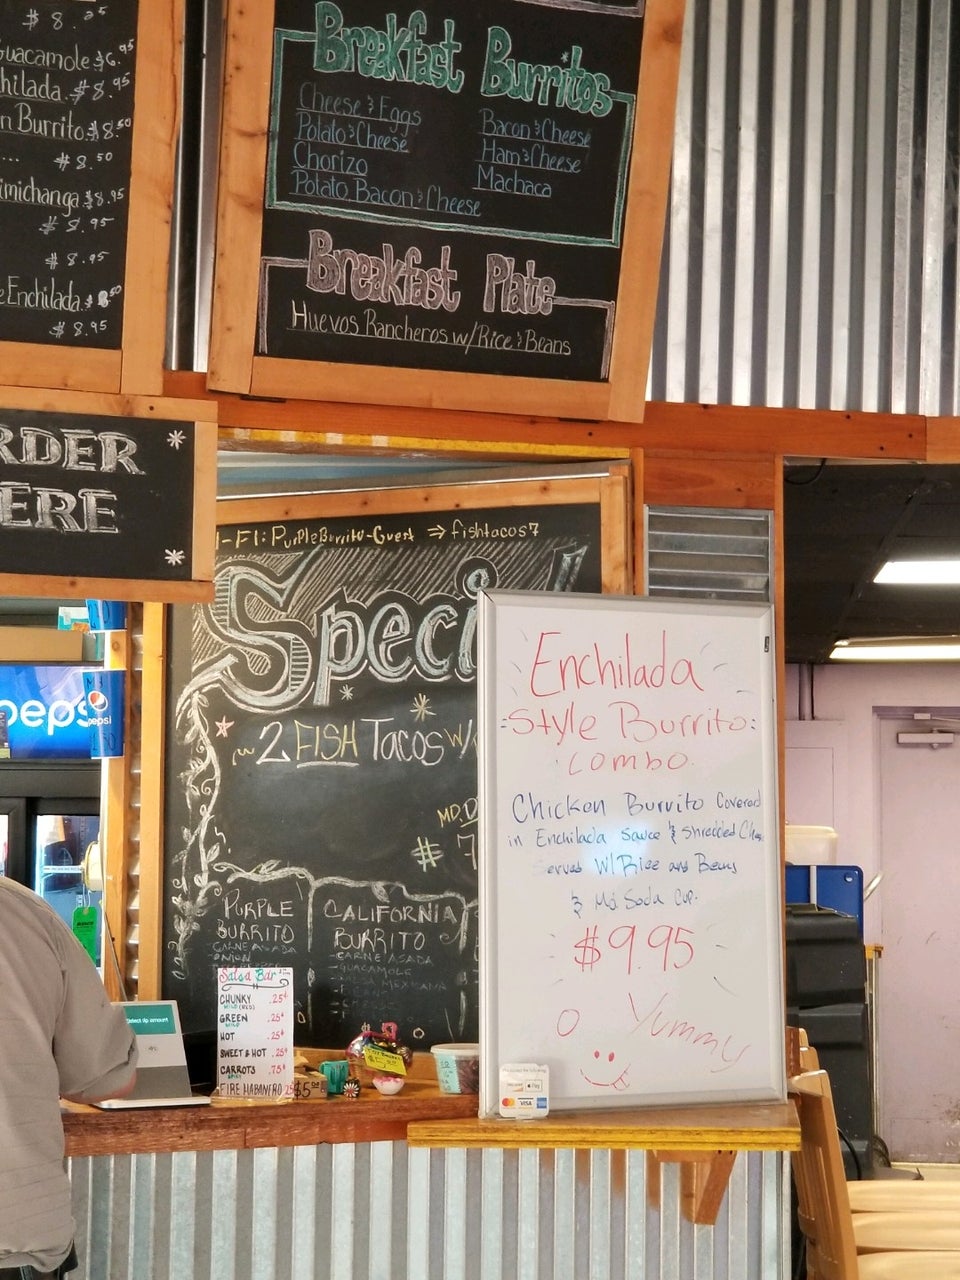 $8.25
Guacamole $6.95
$8.95
Burrito $8.50
.... $8.50
$8.95
$8.95
$8.95
Enchilada
$8.95
Breakfast Burritos
Cheese & Eggs
Potato & Cheese
Chorizo
Potato, Bacon & Cheese
Bacon & Cheese
Ham & Cheese
Machaca
Breakfast Plate
Huevos Rancheros w/Rice & Beans
PurpleBurrito-Guest → fishtacos7
2 FISH Tacos W/
MD.
#
PURPLE
BURRITO
CARNE ASADA
CALIFORNIA
BURRITO
-CARNE ASADA
-GUACAMOLE
pepsi
pepsi
Select tip amount
Salsa Bar
CHUNKY .25¢
MILD
GREEN .25¢
MILD
HOT .25¢
SWEET & HOT .25¢
CARROTS .75¢
FIRE HABANERO
Enchilada
Style Burrito
Combo
Chicken Burrito Covered
in Enchilada Sauce & Shredded
Served W/Rice and Beans
& Md Soda Cup.
$9.95
Yummy
Pay
VISA